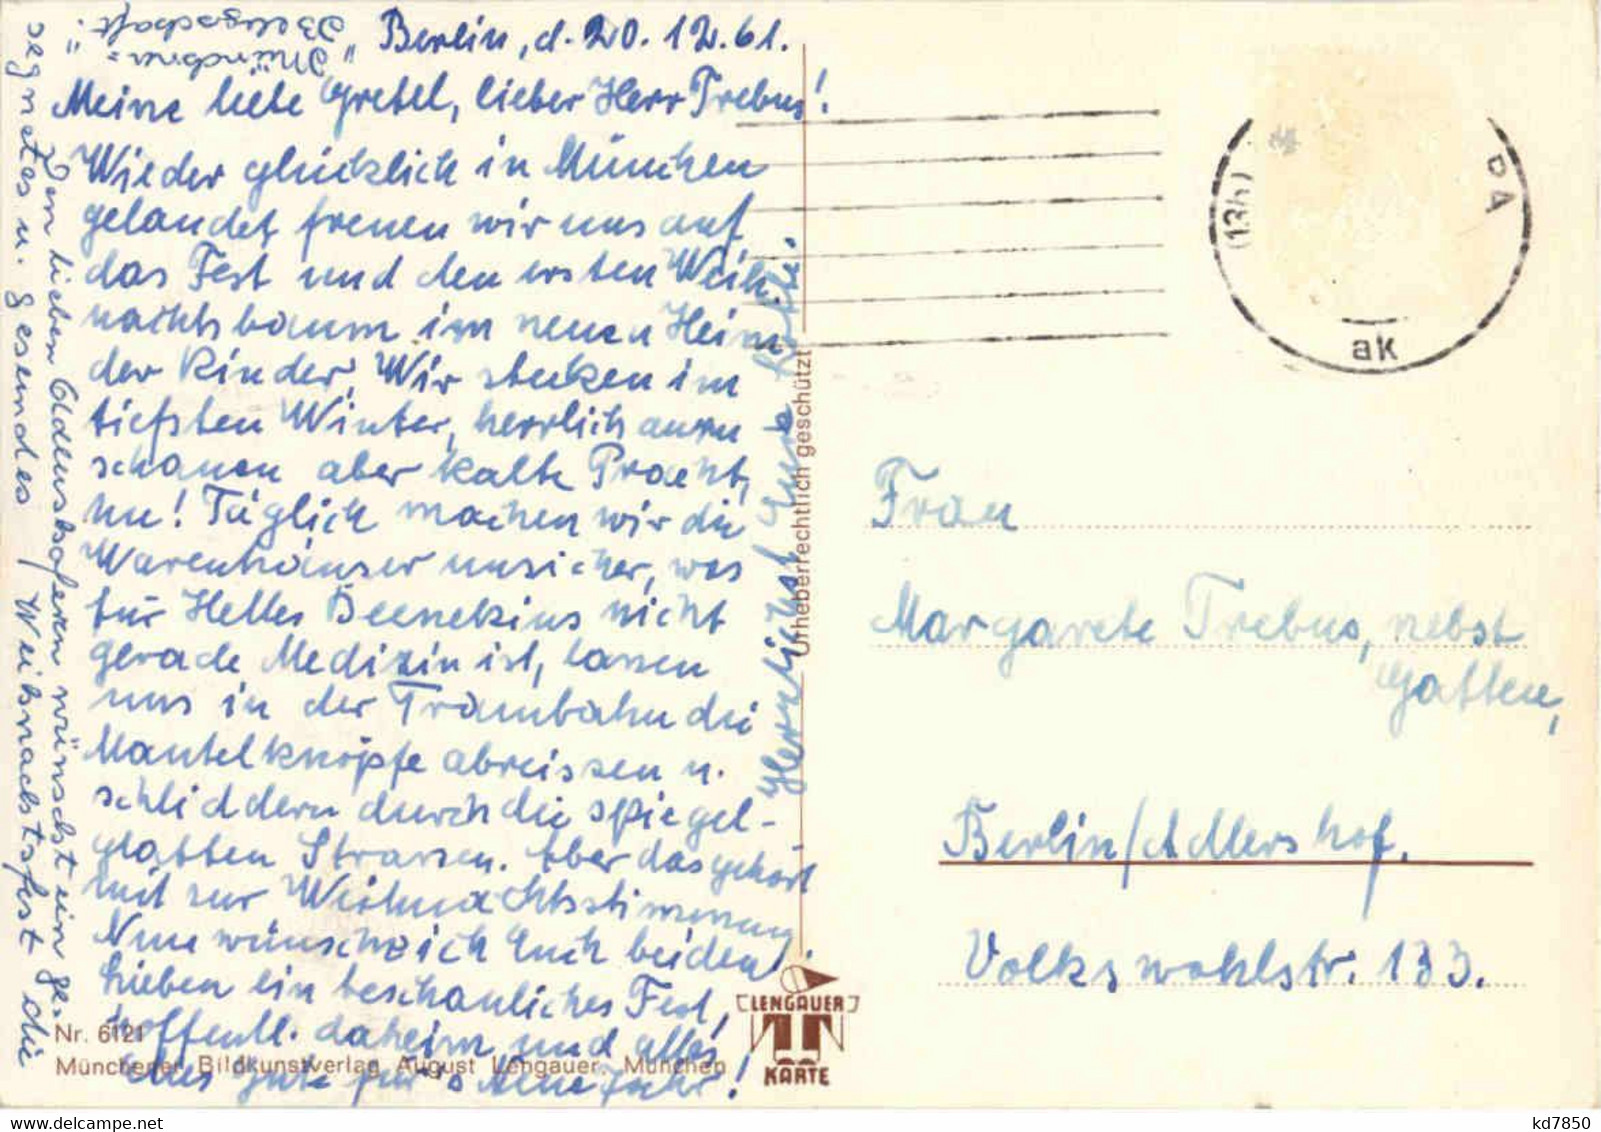 Berlin, d. 20.12.61.
Meine liebe Gretel, lieber Herr Trebus!
Wieder glücklich in München
gelandet freuen wir uns auf
das Fest und den ersten Weih-
nachtsbaum im neuen Heim
der Kinder. Wir stecken im
tiefsten Winter, herrlich anzu
schauen aber kalte Pracht,
hu! Täglich machen wir die
Warenhäuser unsicher, was
für Helles Beenekins nicht
gerade Medizin ist, lassen
uns in der Trambahn die
Mantelknöpfe abreissen u.
schliddern durch die spiegel-
glatten Strassen. Aber das gehört
mit zur Weihnachtsstimmung.
Nun wünsche ich Euch beiden
Lieben ein beschauliches Fest,
hoffentl. daheim und alles
alles Gute für's Neue Jahr!
Herzlichst Eure Lotte.
Den lieben Oldenishofern wünscht ein ge-
segnetes u. gesundes Weihnachtsfest die
"Münchna-
Belegschaft."
Frau
Margarete Trebus, nebst
Gatten,
Berlin/Adlershof.
Volkswohlstr. 133.
(13b)
ak
Urheberrechtlich geschützt
LENGAUER
KARTE
Nr. 6121
Münchener Bildkunstverlag August Lengauer, München
kd7850